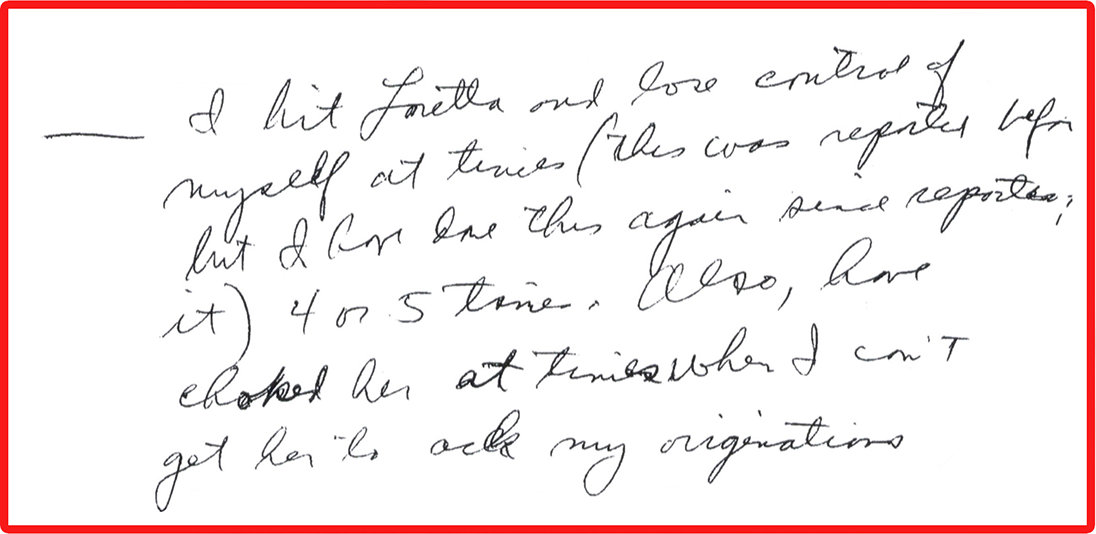 I hit Loretta and lose control of
myself at times (this was reported before
but I have done this again since reporting
it) 4 or 5 times. Also, have
choked her at times when I can't
get her to ack my originations